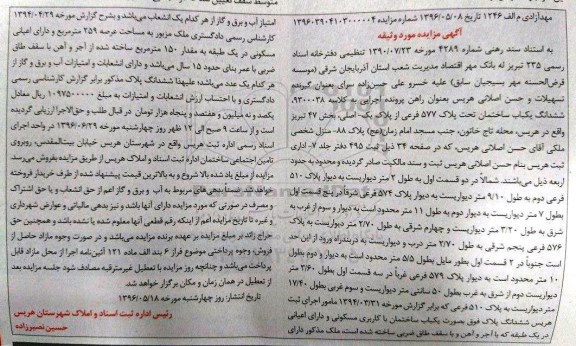 مهدآزادی م الف ۱۲۴۶ تاریخ ۱۳۹۶/۰۵/۰۸ شماره مزایده ۱۳۹۶۰۳۹۰۴۱۰۳۰۰۰۰۰۴
آگهی مزایده مورد وثیقه
به استناد سند رهنی شماره ۴۲۸۹ مورخه ۱۳۹۰/۰۷/۲۳ تنظیمی دفترخانه اسناد
رسمی ۲۳۵ تبریز له بانک مهر اقتصاد مدیریت شعب استان آذربایجان شرقی (موسسه
قرض‌الحسنه مهر بسیجیان سابق) علیه خسرو علی حسن‌زاده سرای بعنوان گیرنده
تسهیلات و حسن اصلانی هریس بعنوان راهن پرونده اجرایی به کلاسه ۹۳۰۰۰۳۸
ششدانگ یکباب ساختمان تحت پلاک ۵۷۷ فرعی از پلاک یک- اصلی، بخش ۴۷ تبریز
واقع در هریس، محله تاج خاتون، جنب مسجد امام زمان(عج) پلاک ۸۸- منزل شخصی
ملکی آقای حسن اصلانی هریس، که در صفحه ۳۴ ذیل ثبت ۴۹۵ دفتر جلد ۷- اداری
ثبت هریس بنام حسن اصلانی هریس ثبت و سند مالکیت صادر گردیده و محدود به حدود
اربعه ذیل می‌باشند. شمالاً در دو قسمت اول به طول ۲ متر دیواریست به دیوار پلاک ۵۱۰
فرعی دوم به طول ۹/۱۰ متر دیواریست به دیوار پلاک ۵۷۴ فرعی شرقاً در پنج قسمت اول
بطول ۷ متر دیواریست به دیوار دوم به طول ۱۱ متر محدود است به دیوار و سوم از غرب به
شرق به طول ۳/۲۰ متر دیواریست و چهارم شرقی به طول ۲/۷۰ متر دیواریست به پلاک
۵۷۶ فرعی پنجم شرقی به طول ۲/۷۰ متر درب و دیواریست به دربندراه ورود از این حد
است جنوباً در ۲ قسمت اول بطور مایل بطول ۵/۵ متر محدود است به دیوار و دوم بطول
۱۰ متر محدود است به دیوار پلاک ۵۷۹ فرعی غرباً در سه قسمت اول بطول ۳/۶۰ متر
دیواریست دوم از شرق به غرب بطول ۵۰ سانتی متر دیواریست و سوم غربی بطول ۱۷/۴۰
متر دیواریست به پلاک ۵۱۰ فرعی که برابر گزارش مورخه ۱۳۹۴/۰۳/۳۱ مامور اجرای ثبت
هریس ششدانگ پلاک فوق بصورت یکباب ساختمان با کاربری مسکونی و دارای اعیانی
در یک طبقه که با آجر و آهن و با سقف طاق ضربی ساخته شده است. ملک مذکور دارای
امتیاز آب و برق و گاز از هر کدام یک انشعاب می‌باشد و بشرح گزارش مورخه ۱۳۹۴/۰۴/۲۹
کارشناس رسمی دادگستری ملک مزبور به مساحت عرصه ۲۵۹ مترمربع و دارای اعیانی
مسکونی در یک طبقه به مقدار ۱۵۰ مترمربع ساخته شده از آجر و آهن با سقف طاق
ضربی با عمر بنای حدود ۱۵ سال می‌باشد و دارای انشعابات و امتیازات آب و برق و گاز از
هر کدام یک عدد می‌باشد؛ علیهذا ششدانگ پلاک مذکور برابر گزارش کارشناسی رسمی
دادگستری و با احتساب ارزش انشعابات و امتیازات به مبلغ ۱۰۹۷۵۰۰۰۰۰ ریال معادل
یکصد و نه میلیون و هفتصد و پنجاه هزار تومان در قبال طلب و حق‌الاجرا ارزیابی گردیده
است و از ساعت ۹ صبح الی ۱۲ ظهر روز چهارشنبه مورخه ۱۳۹۶/۰۶/۲۹ در واحد اجرای
اسناد رسمی اداره ثبت هریس واقع در شهرستان هریس خیابان بیت‌المقدس، روبروی
تامین اجتماعی ساختمان اداره ثبت اسناد و املاک هریس از طریق مزایده بفروش می‌رسد.
مزایده از مبلغ یاد شده بالا شروع و به بالاترین قیمت پیشنهاد شده از طرف خریدار فروخته
خواهد شد. ضمناً بدهی‌های مربوط به آب و برق و گاز اعم از حق انشعاب و یا حق اشتراک
و مصرف در صورتی که مورد مزایده دارای آنها باشد و نیز بدهی مالیاتی و عوارض شهرداری
و غیره تا تاریخ مزایده اعم از اینکه رقم قطعی آنها معلوم شده یا نشده باشد و همچنین حق
حراج زائد بر مبلغ مزایده بر عهده برنده مزایده می‌باشد و در صورت وجوه مازاد حاصل از
فروش، وجوه پرداختی موضوع فراز ۶ بند الف ماده ۱۲۱ آئین‌نامه اجرا از محل مازاد قابل
پرداخت می‌باشد و چنانچه روز مزایده با تعطیل غیرمترقبه مصادف شود جلسه مزایده بعد
از تعطیل در همان زمان و مکان برگزار خواهد شد.
تاریخ انتشار: روز چهارشنبه مورخه ۱۳۹۶/۰۵/۱۸
رئیس اداره ثبت اسناد و املاک شهرستان هریس
حسین نصیرزاده